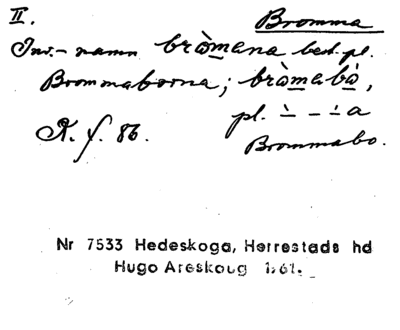 II. Bromma
Inv.-namn bràmana best. pl.
Brommaborna; bràmabò,
pl. ̀ – ̵ a
K. f. 86. Brommabo.
Nr 7533 Hedeskoga, Herrestads hd
Hugo Areskoug